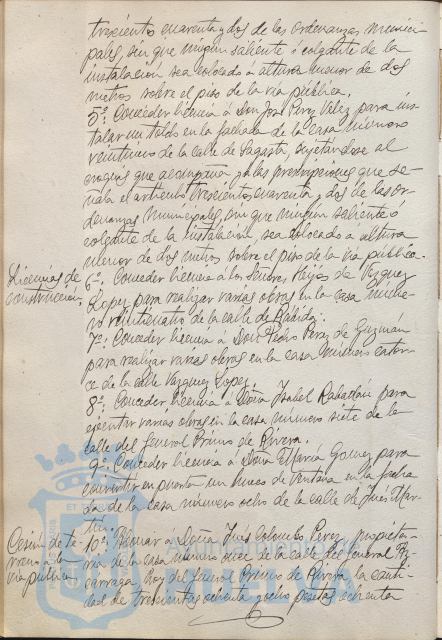 trescientos cuarenta y dos de las ordenanzas munici-
pales, sin que ningún saliente ó colgante de la
instalación sea colocado á altura menor de dos
metros sobre el piso de la vía pública.
5º: Conceder licencia á Don José Perez Velez para ins-
talar un toldo en la fachada de la casa número
veintiuno de la calle de Sagasta, sujetándose al
croquis que acompaña y á las prescripciones que se-
ñala el artículo trescientos cuarenta y dos de las or-
denanzas municipales, sin que ningún saliente ó
colgante de la instalación, sea colocado á altura
menor de dos metros sobre el piso de la vía pública.
Licencias de
construcción.
6º: Conceder licencia á los Señores Hijos de Vazquez
Lopez para realizar varias obras en la casa núme-
ro veinticuatro de la calle de Rábida.
7º: Conceder licencia á Don Pedro Perez de Guzmán
para realizar varias obras en la casa número cator-
ce de la calle Vazquez Lopez.
8º: Conceder licencia á Doña Isabel Rabadán para
ejecutar varias obras en la casa número siete de la
calle del General Primo de Rivera.
9º: Conceder licencia á Doña María Gomez para
convertir en puerta un hueco de ventana en la facha
da de la casa número ocho de la calle de Mar-
tin.
Cesión de te-
rreno á la
vía pública
10º: á Doña Inés Colombo Perez, propieta-
ria de la casa número doce de la calle del General Az-
cárraga, hoy del General Primo de Rivera la canti-
dad de trescientas ochenta y ocho pesetas ochenta
HUELVA